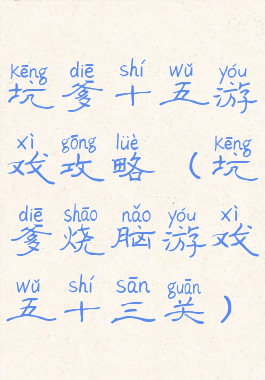 kēng diē shí wǔ yóu
坑爹十五游
xì gōng lüè kēng
戏攻略（坑
diē shāo nǎo yóu xì
爹烧脑游戏
wǔ shí sān guān
五十三关）